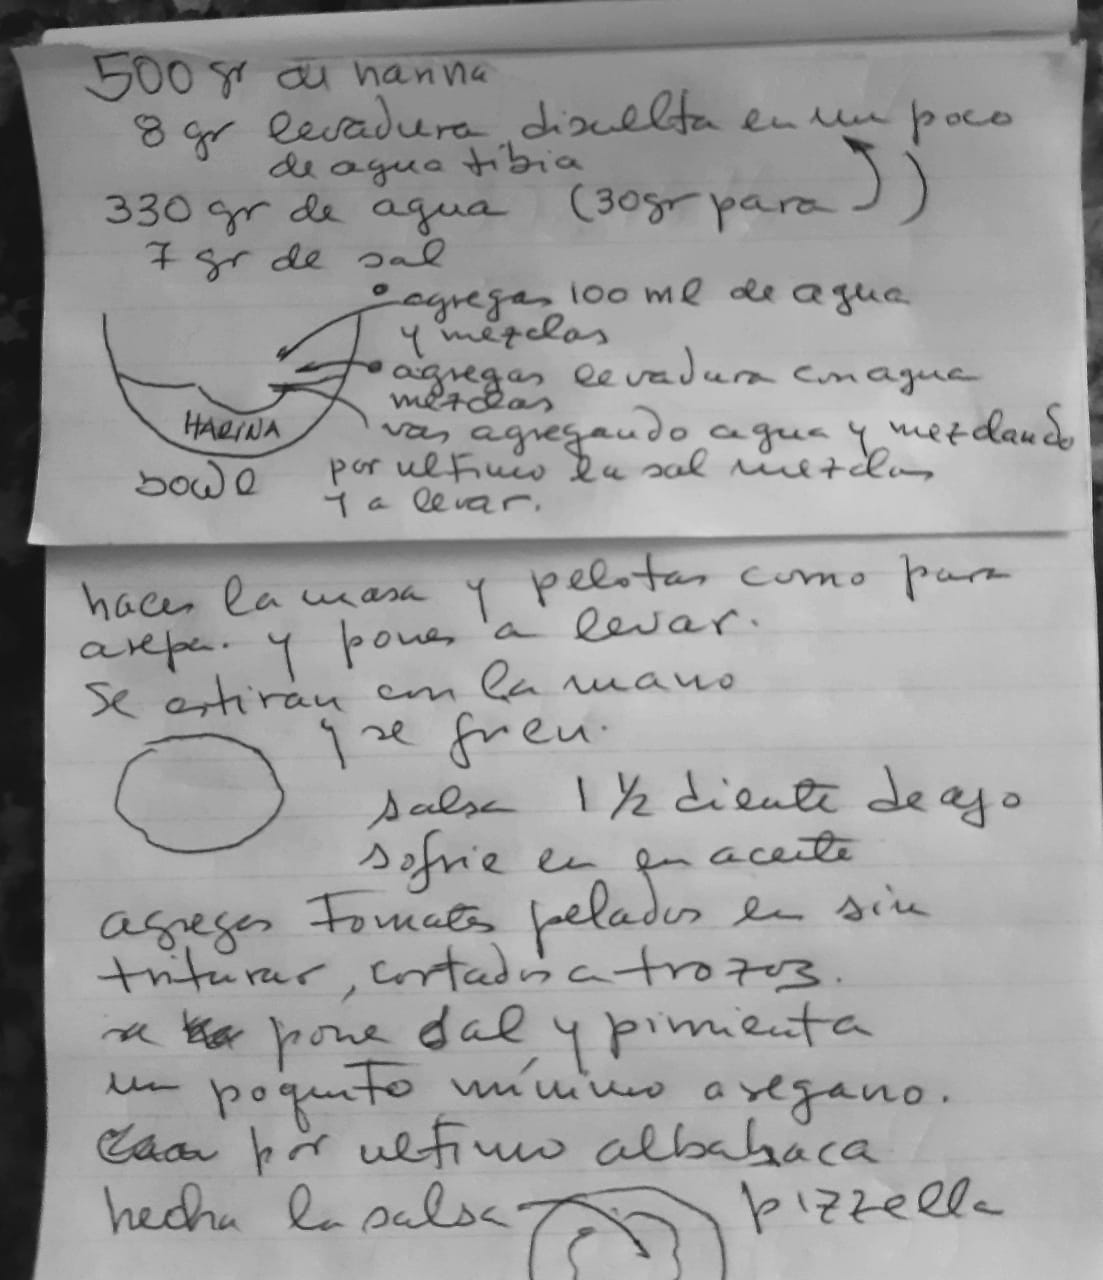 500 gr de harina
8 gr levadura disuelta en un poco
de agua tibia
330 gr de agua (30gr para )
7 gr de sal
agregas 100 ml de agua
y mezclas
agregas levadura con agua
mezclas
HARINA
vas agregando agua y mezclando
bowl
por ultimo la sal mezclas
y a levar.
haces la masa y pelotas como para
arepa. y pones a levar.
Se estiran con la mano
y se freu.
salsa 1 1/2 diente de ajo
sofrie en en aceite
agregas Tomates pelados en sin
triturar, cortados a trozos.
se pone sal y pimienta
un poquito mínimo oregano.
por ultimo albahaca
hecha la salsa
pizzella